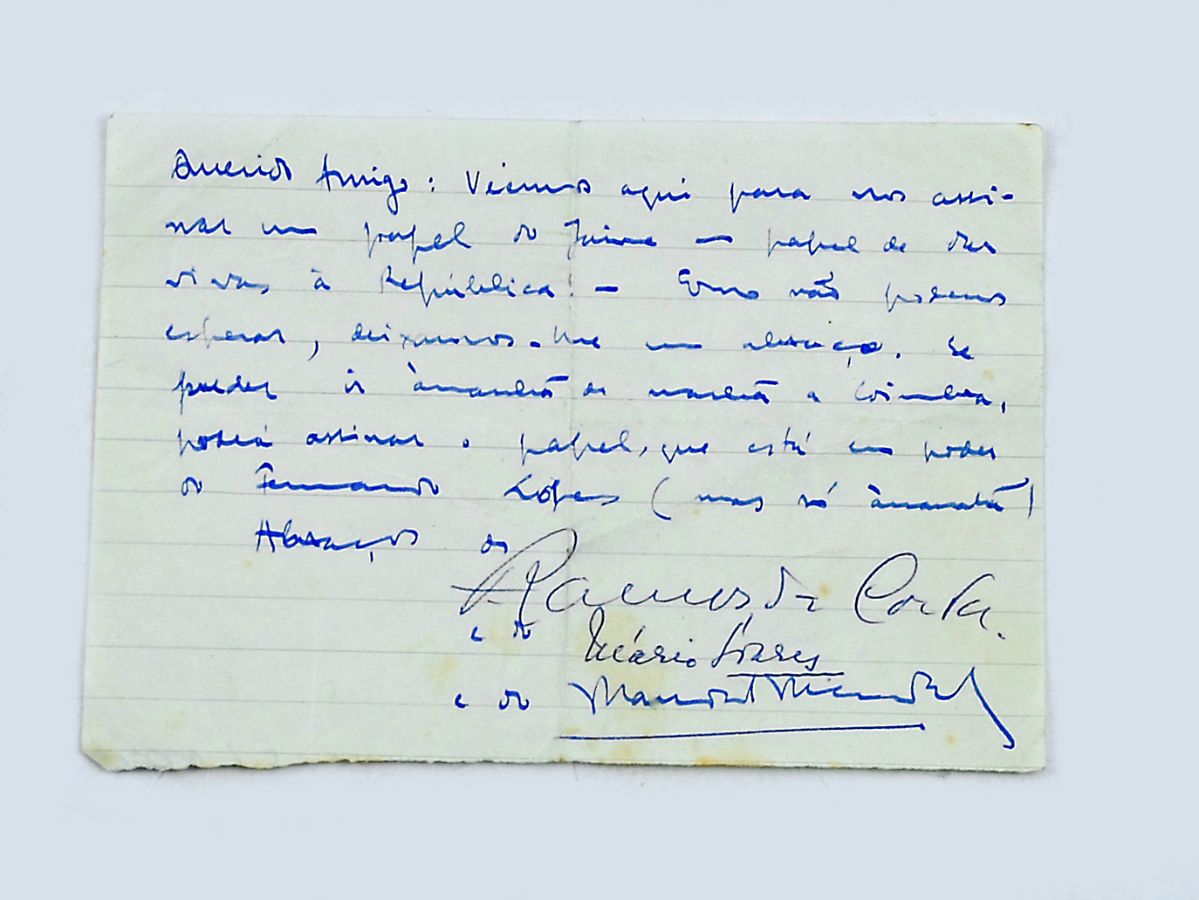 Querido Amigo: Viemos aqui para nos assi-
nar um papel do Jaime — papel de dar
vivas à República! — Como não podemos
esperar, deixamos-lhe um abraço. Se
puder ir àmanhã de manhã a Coimbra,
poderá assinar o papel, que está em poder
do Fernando Lopes (mas só àmanhã)
Abraços do
Ramos da Costa.
e do Mário Soares
e do